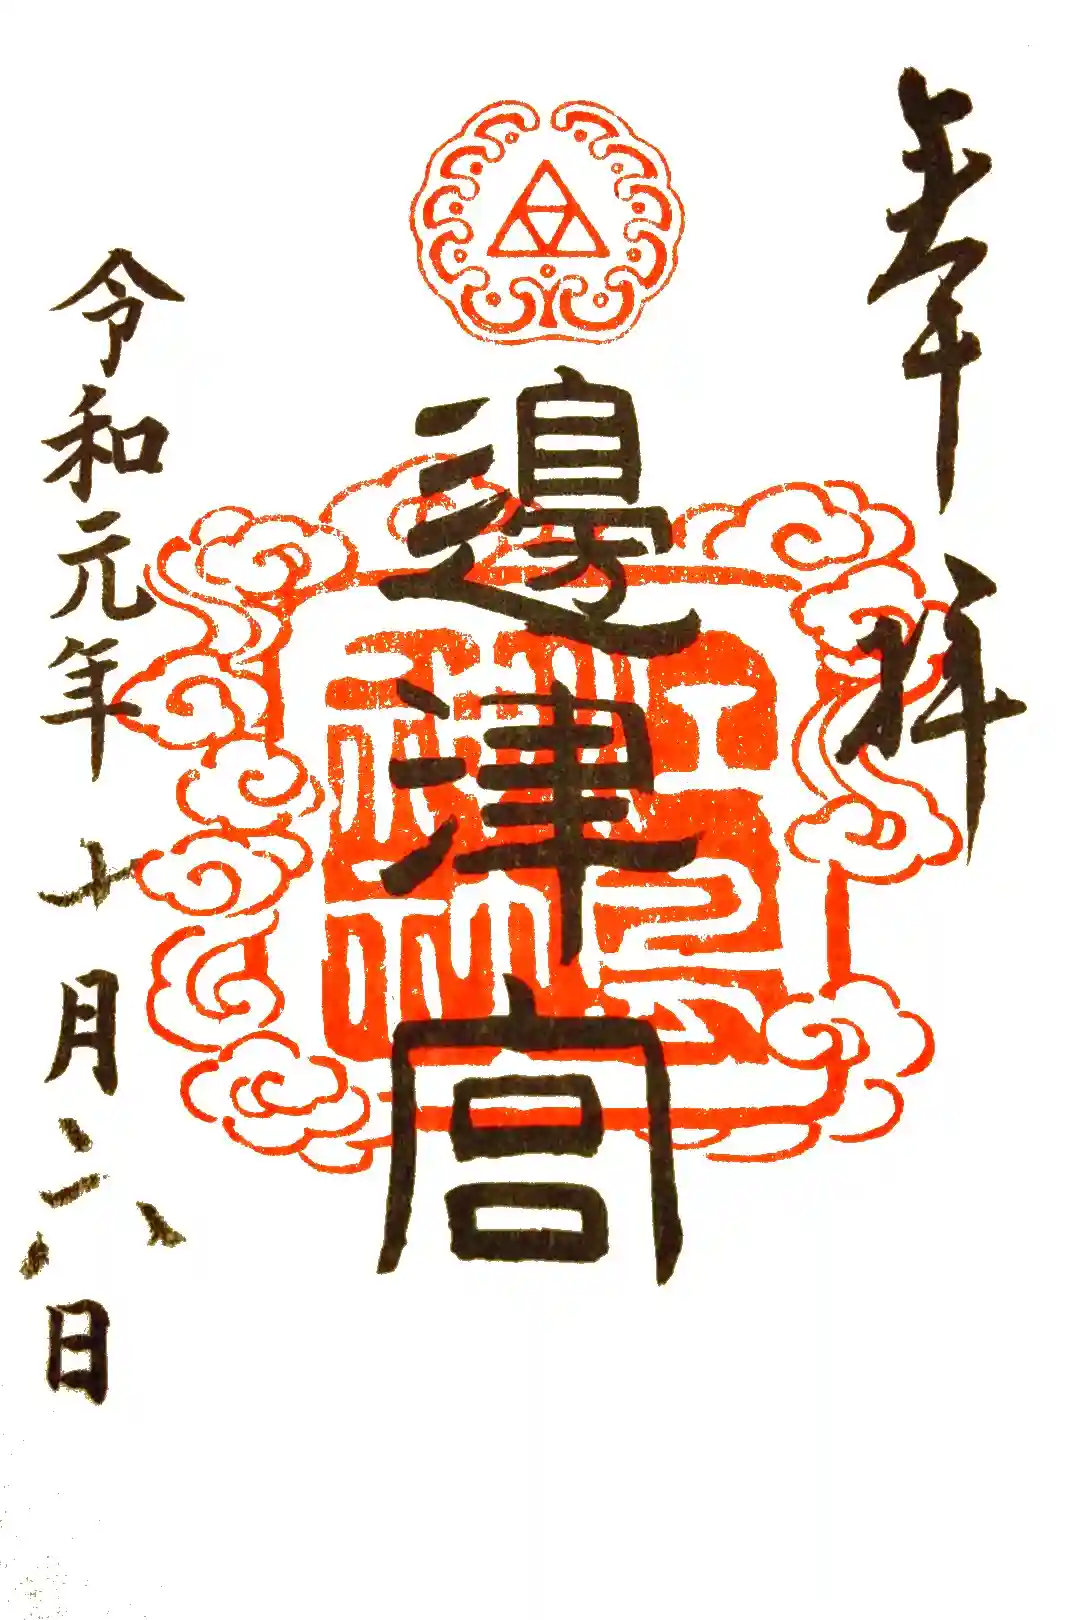 奉拝
邊津宮
江島神社
令和元年十月二八日